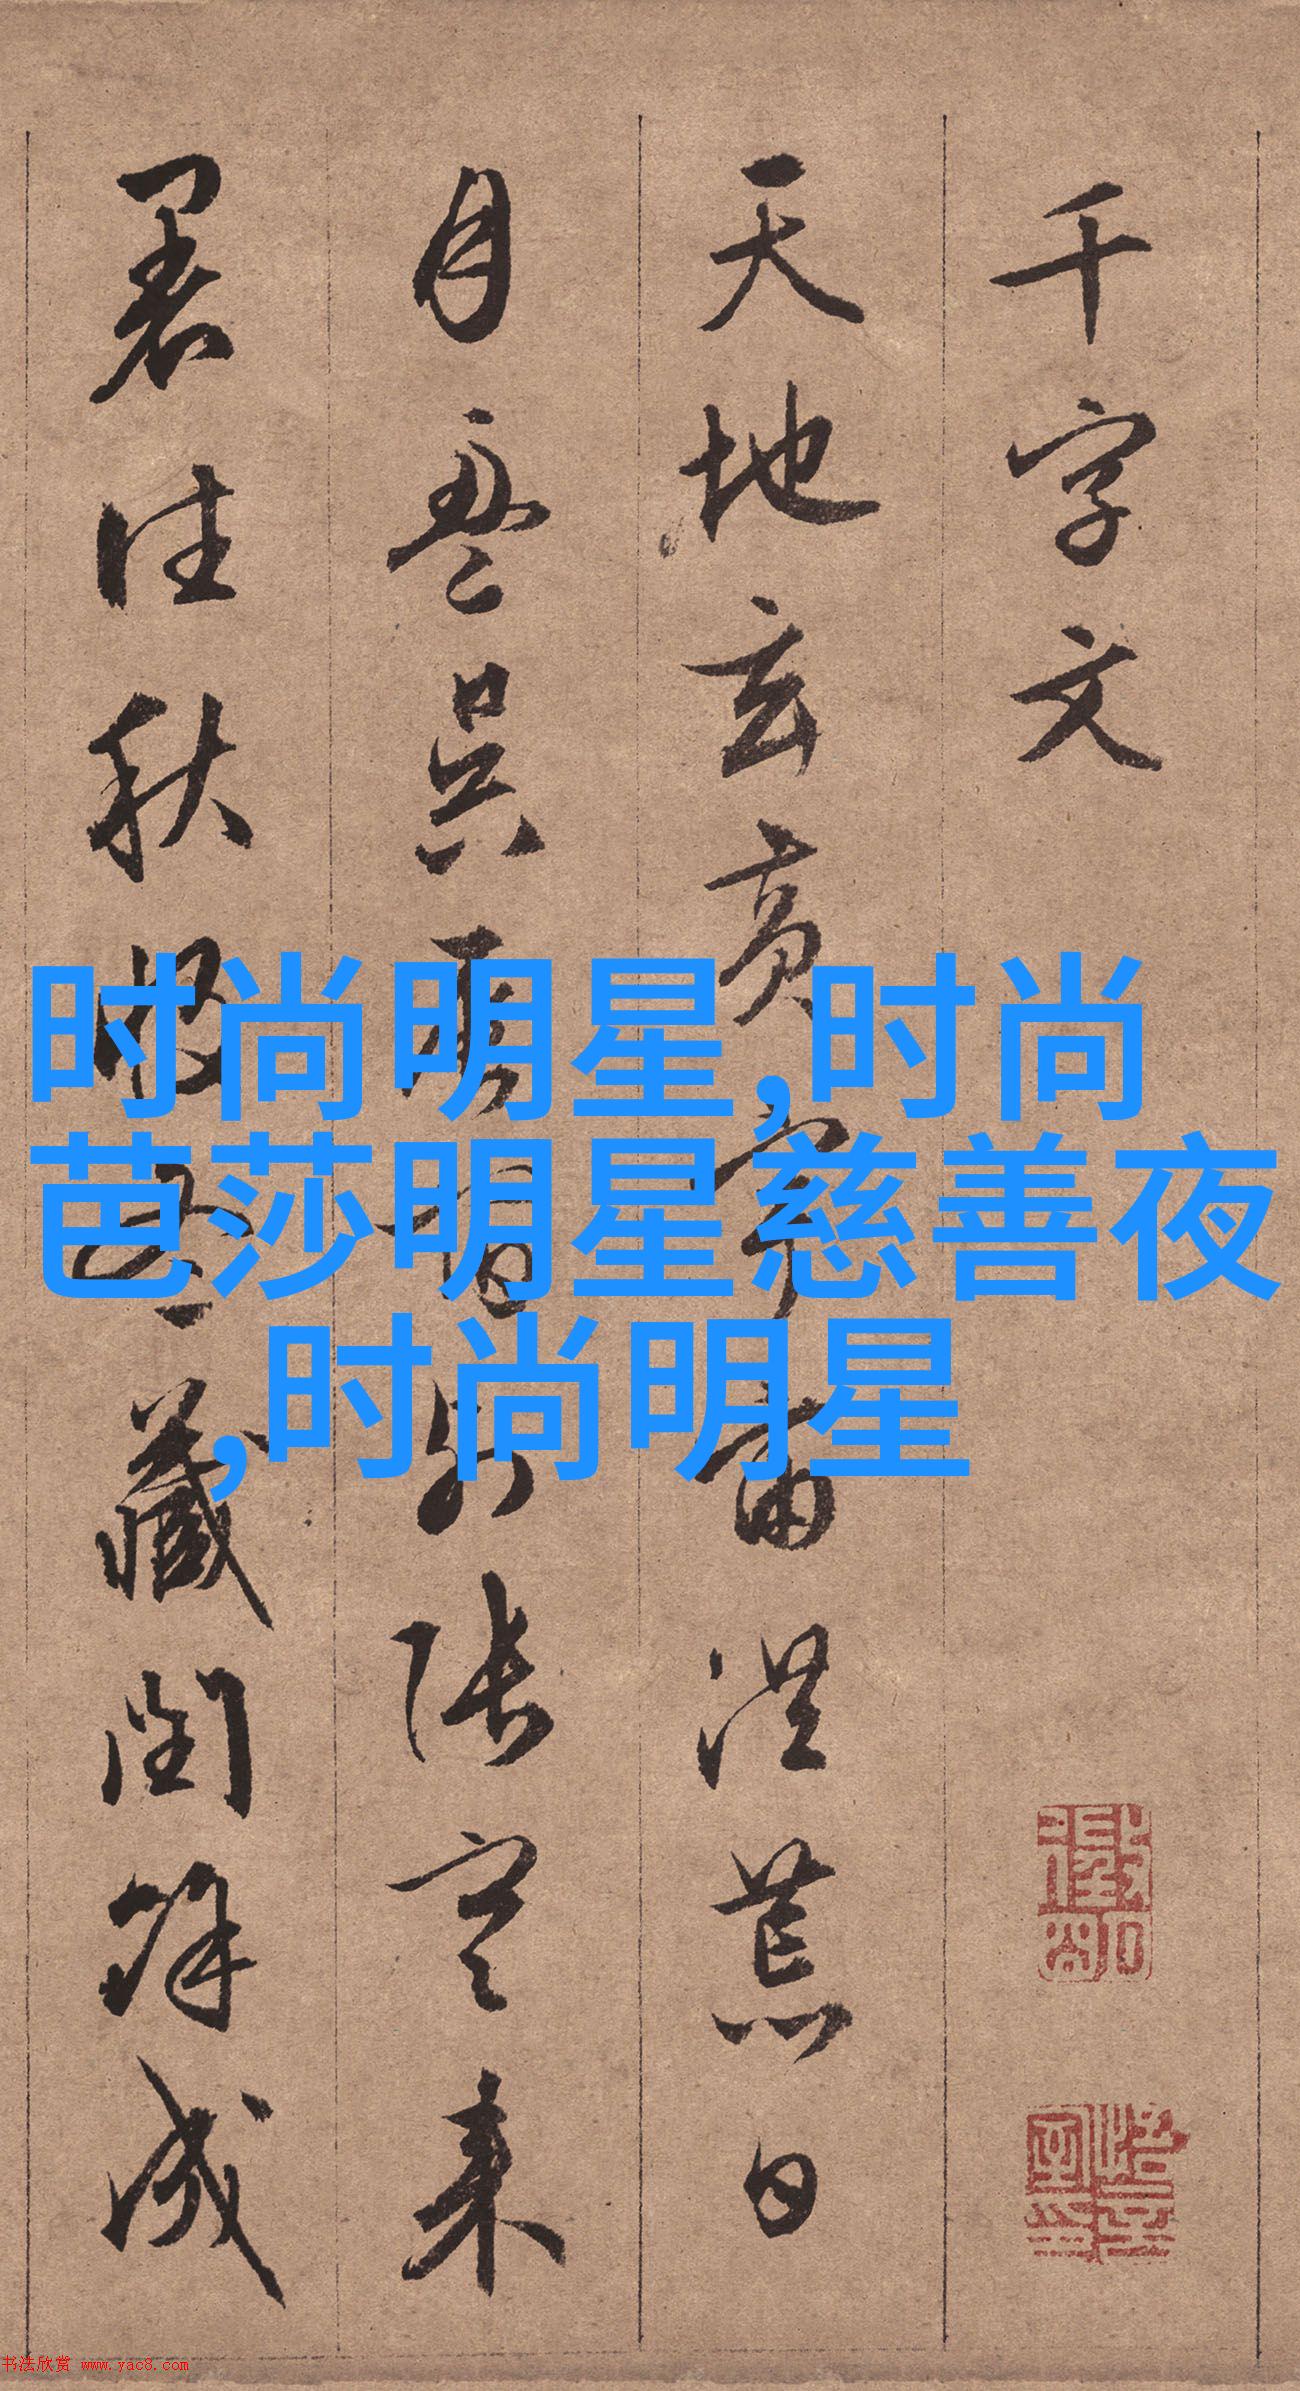 千字文
天地玄黃宇宙洪荒日
月盈昃辰宿列張寒来
暑往秋收冬藏閏餘成
时尚明星,时尚
芭莎明星慈善夜
,时尚明星
书法欣赏 www.yac8.com